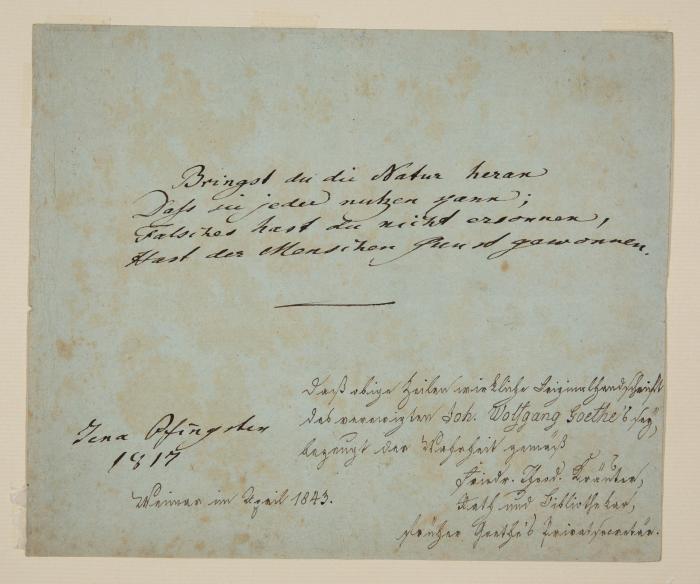 Bringst du die Natur heran
Daß sie jeder nutzen kann;
Falsches hast du nicht ersonnen,
Hast der Menschen Gunst gewonnen.
Jena Pfingsten
1817
Daß obige Zeilen wirkliche Originalhandschrift
des verewigten Joh. Wolfgang Goethe's sey,
bezeugt der Wahrheit gemäß
Friedr. Theod. Kräuter,
Rath und Bibliothekar,
früher Goethe's Privatsecretär.
Weimar im April 1843.